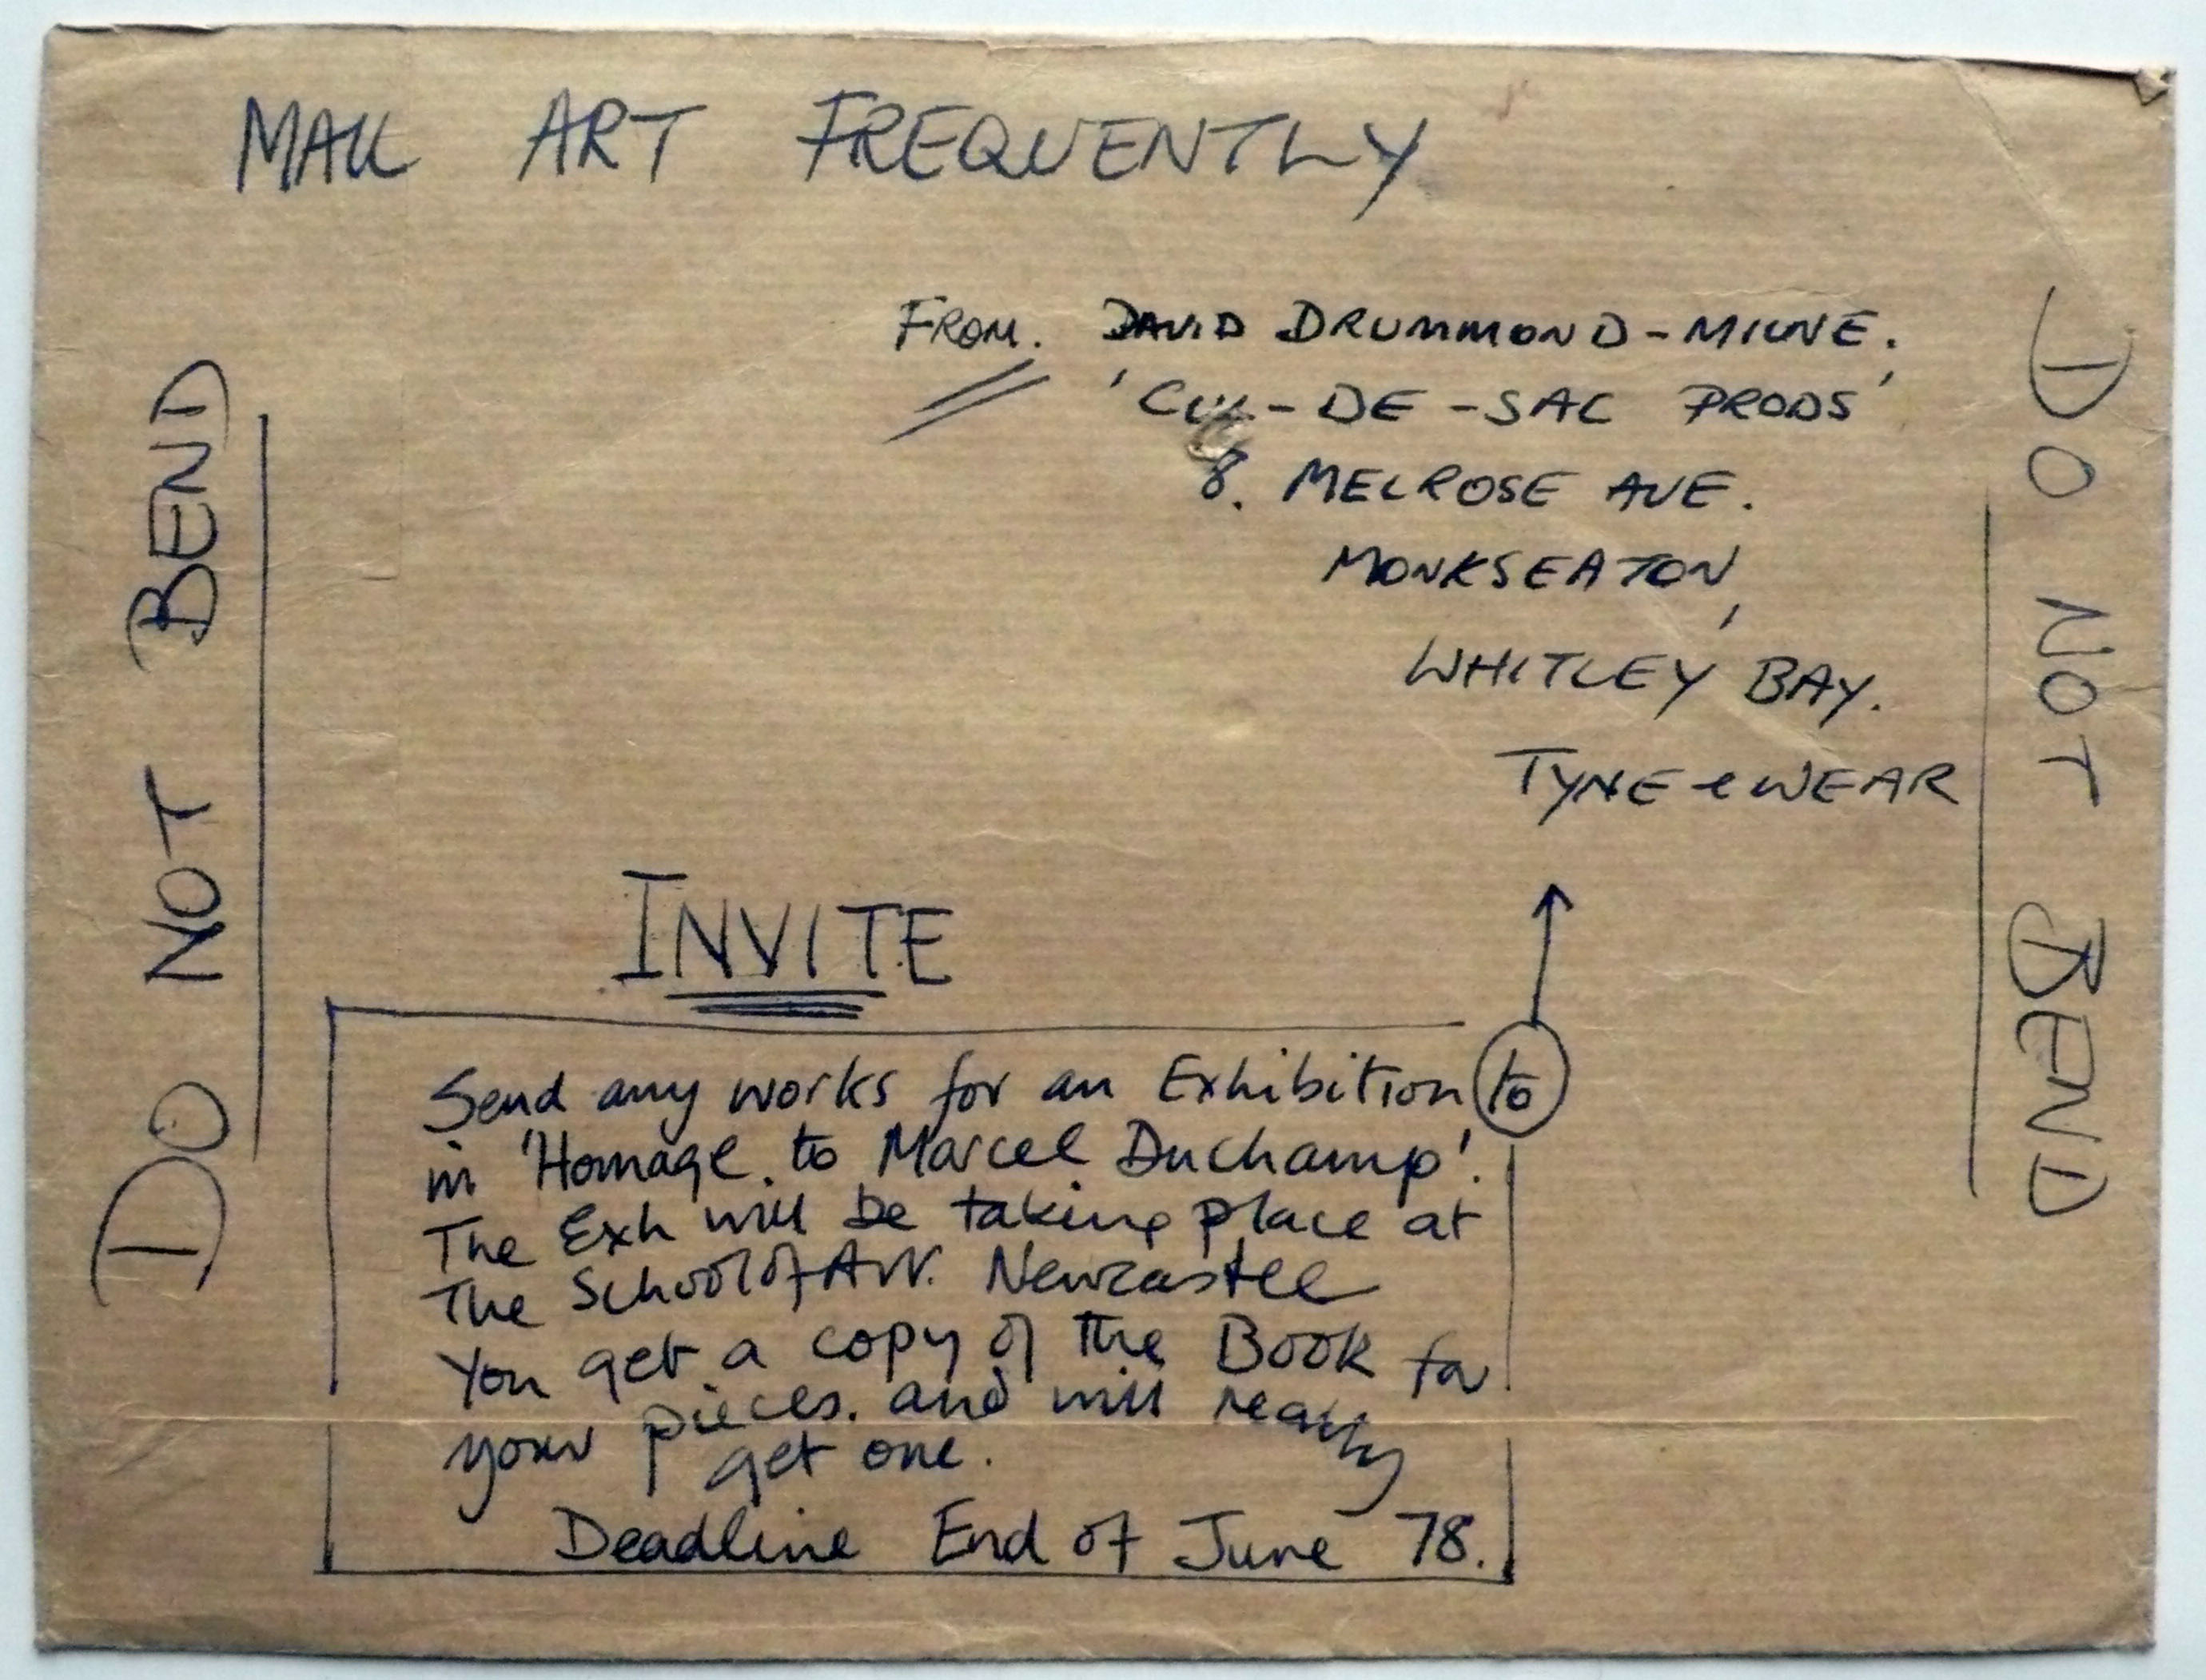 MAIL ART FREQUENTLY
FROM. DAVID DRUMMOND-MILNE.
'CUL-DE-SAC PRODS'
8. MELROSE AVE.
MONKSEATON,
WHITLEY BAY.
TYNE & WEAR
DO NOT BEND
DO NOT BEND
INVITE
Send any works for an Exhibition to
in 'Homage to Marcel Duchamp'.
The Exh will be taking place at
The School of Art. Newcastle
You get a copy of the Book for
your pieces. and will really
get one.
Deadline End of June 78.